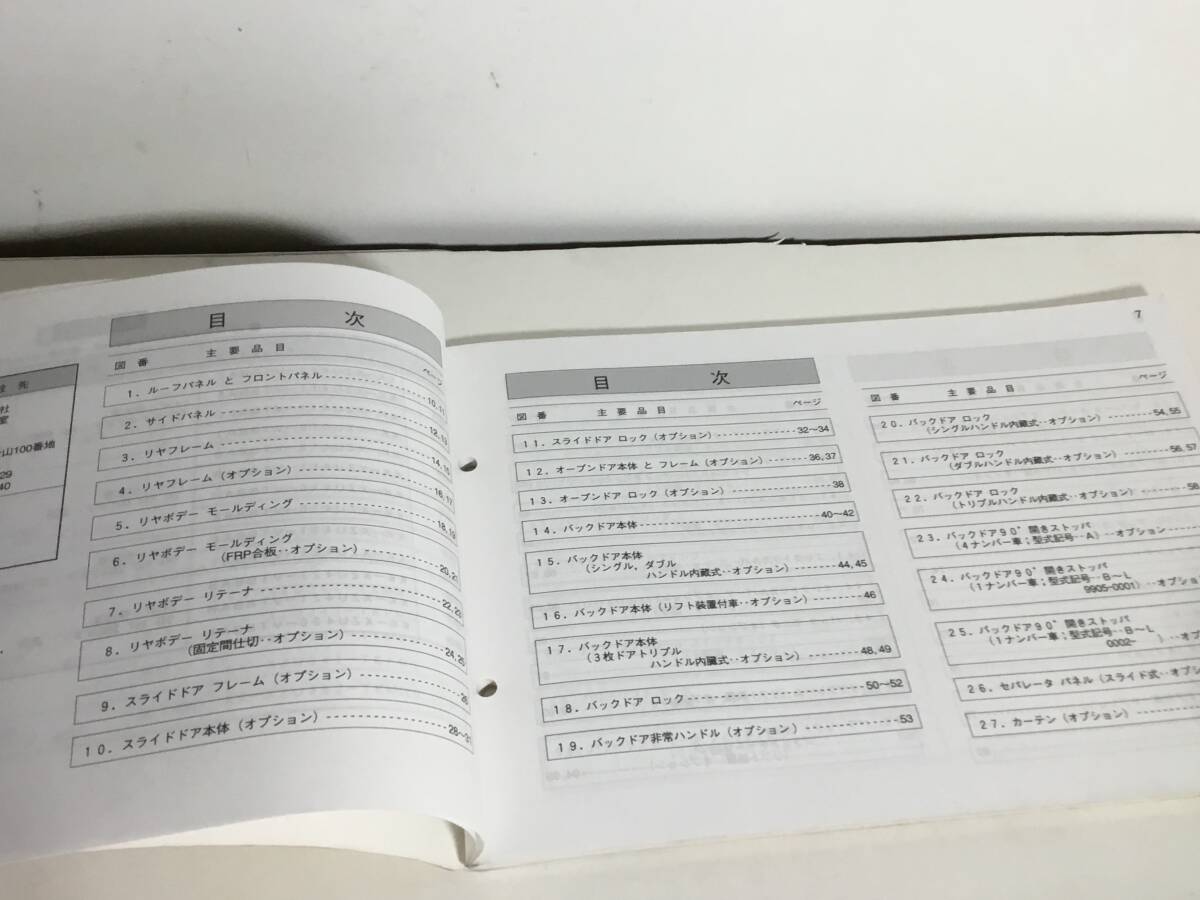 先
社
室
山100番地
29
40
目 次
図番 主要品目 ページ
1．ルーフパネル と フロントパネル 10,11
2．サイドパネル 12,13
3．リヤフレーム 14,15
4．リヤフレーム（オプション） 16,17
5．リヤボデー モールディング 18,19
6．リヤボデー モールディング
（FRP合板‥オプション） 20,21
7．リヤボデー リテーナ 22,23
8．リヤボデー リテーナ
（固定間仕切‥オプション） 24,25
9．スライドドア フレーム（オプション） 26
10．スライドドア本体（オプション） 28～31
7
目 次
図番 主要品目 ページ
11．スライドドア ロック（オプション） 32～34
12．オーブンドア本体 と フレーム（オプション） 36,37
13．オーブンドア ロック（オプション） 38
14．バックドア本体 40～42
15．バックドア本体
（シングル，ダブル
ハンドル内蔵式‥オプション） 44,45
16．バックドア本体（リフト装置付車‥オプション） 46
17．バックドア本体
（3枚ドアトリプル
ハンドル内臓式‥オプション） 48,49
18．バックドア ロック 50～52
19．バックドア非常ハンドル（オプション） 53
図番 主要品目 ページ
20．バックドア ロック
（シングルハンドル内蔵式‥オプション） 54,55
21．バックドア ロック
（ダブルハンドル内蔵式‥オプション） 56,57
22．バックドア ロック
（トリプルハンドル内蔵式‥オプション） 58,
23．バックドア90°開きストッパ
（4ナンバー車；型式記号‥A）‥オプション
24．バックドア90°開きストッパ
（1ナンバー車；型式記号‥B～L
9905-0001）‥オプシ
25．バックドア90°開きストッパ
（1ナンバー車；型式記号‥B～L
0002- ）‥オプ
26．セパレータ パネル（スライド式‥オプシ
27．カーテン（オプション）